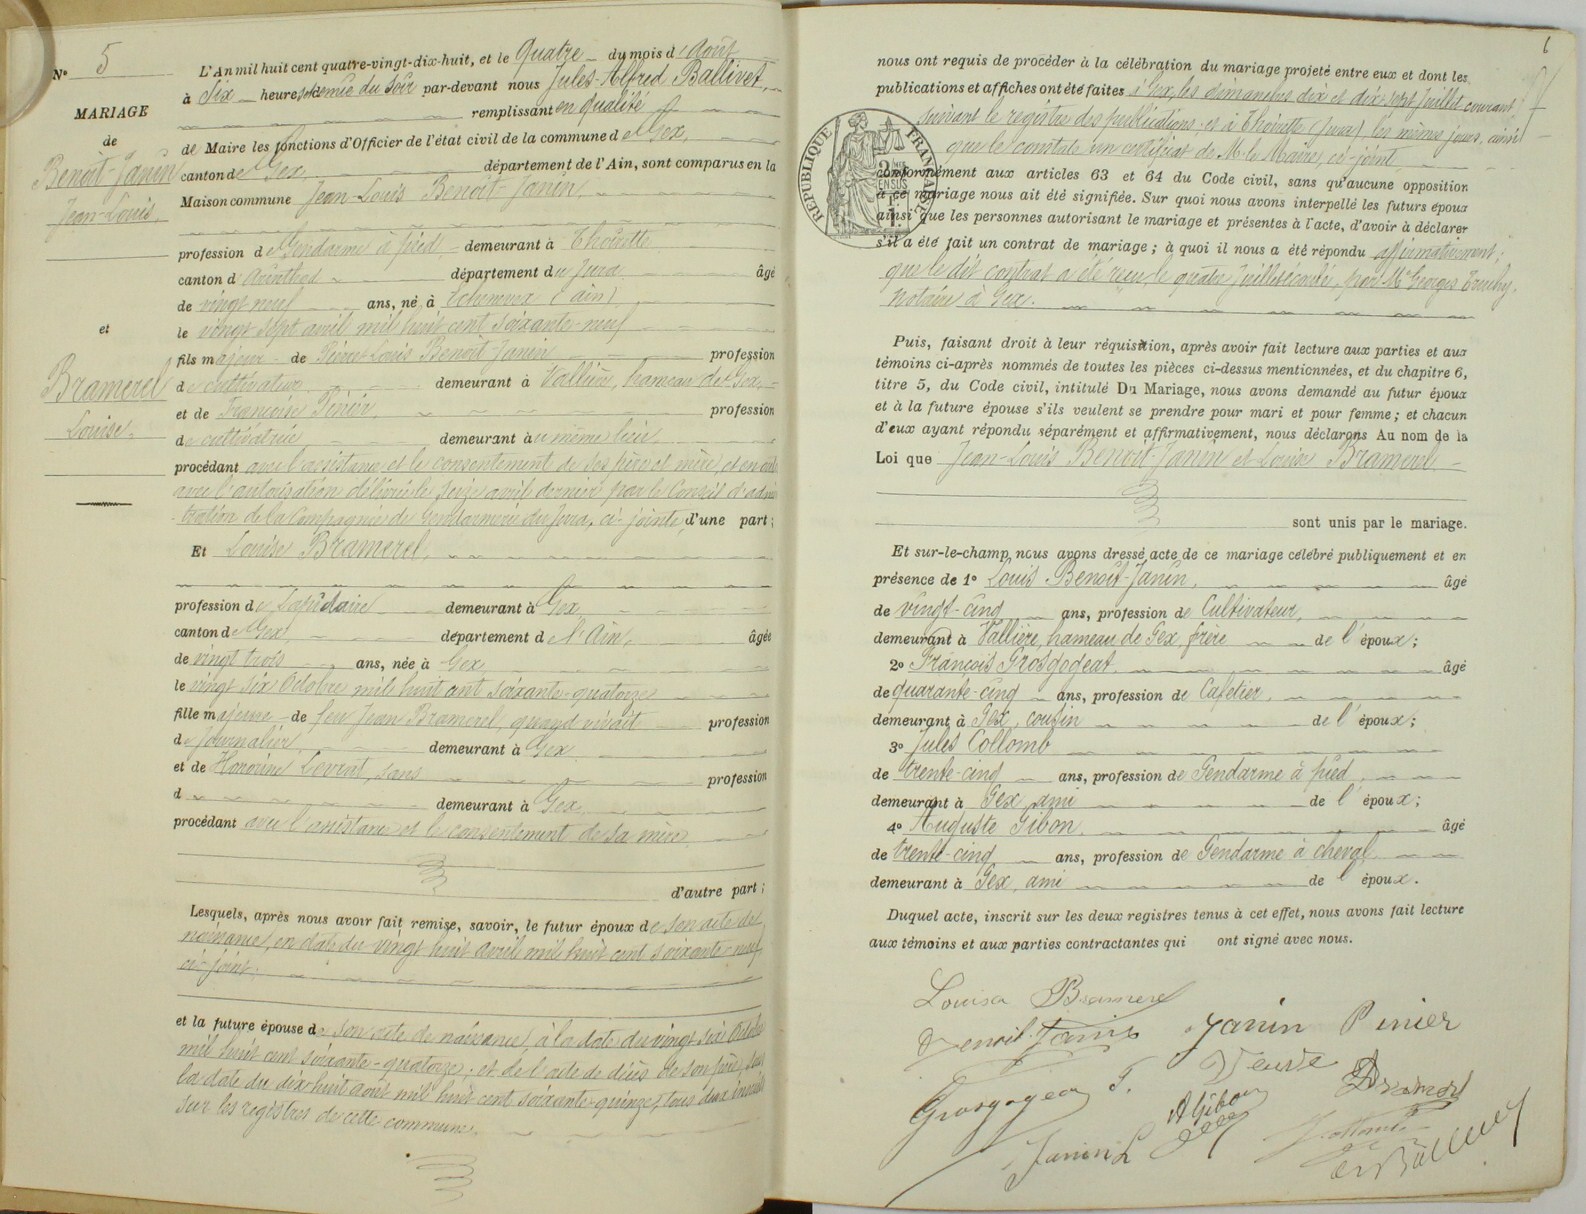 N° 5
MARIAGE
de
Benoit-Janin
Jean-Louis.
et
Bramerel
Louise.
L'An mil huit cent quatre-vingt-dix-huit, et le Quatre du mois d'Août
à Six heures et demie du soir par-devant nous Jules-Alfred Ballivet,
remplissant en qualité
de Maire les fonctions d'Officier de l'état civil de la commune de Gex,
canton de Gex, département de l'Ain, sont comparus en la
Maison commune Jean-Louis Benoit-Janin,
profession de Gendarme à pied demeurant à Thoirette
canton d'Arinthod département du Jura âgé
de vingt neuf ans, né à Echenevex (Ain)
le vingt sept avril mil huit cent soixante-neuf
fils majeur de Pierre Louis Benoit-Janin profession
de cultivateur demeurant à Vallière, hameau de Gex,
et de Françoise Pinier, profession
de cultivatrice demeurant au même lieu
procédant avec l'assistance et le consentement de ses père et mère, et en outre
avec l'autorisation délivrée le seize avril dernier par le Conseil d'adminis
tration de la Compagnie de Gendarmerie du Jura, ci-jointe d'une part;
Et Louise Bramerel,
profession de Lapidaire demeurant à Gex
canton de Gex département de l'Ain, âgée
de vingt trois ans, née à Gex
le vingt six Octobre mil huit cent soixante-quatorze
fille majeure de feu Jean Bramerel, quand vivait profession
de Journalier demeurant à Gex
et de Honorine Levrat, sans profession
d demeurant à Gex
procédant avec l'assistance et le consentement de sa mère
d'autre part;
Lesquels, après nous avoir fait remise, savoir, le futur époux de son acte de
naissance, en date du vingt huit avril mil huit cent soixante-neuf,
ci-joint;
et la future épouse de son acte de naissance, à la date du vingt six Octobre
mil huit cent soixante-quatorze; et de l'acte de décès de son père, sous
la date du dix huit août mil huit cent soixante-quinze, tous deux inscrits
sur les registres de cette commune.
nous ont requis de procéder à la célébration du mariage projeté entre eux et dont les
publications et affiches ont été faites à Gex, les dimanches dix et dix sept Juillet courant
suivant le registre des publications; et à Thoirette (Jura) les mêmes jours, ainsi
que le constate un certificat de Mr le Maire, ci-joint
RÉPUBLIQUE FRANÇAISE
conformément aux articles 63 et 64 du Code civil, sans qu'aucune opposition
à ce mariage nous ait été signifiée. Sur quoi nous avons interpellé les futurs époux
ainsi que les personnes autorisant le mariage et présentes à l'acte, d'avoir à déclarer
s'il a été fait un contrat de mariage; à quoi il nous a été répondu affirmativement;
que le dit contrat a été reçu le quatre Juillet écoulé, par Me Georges
Notaire à Gex.
Puis, faisant droit à leur réquisition, après avoir fait lecture aux parties et aux
témoins ci-après nommés de toutes les pièces ci-dessus mentionnées, et du chapitre 6,
titre 5, du Code civil, intitulé Du Mariage, nous avons demandé au futur époux
et à la future épouse s'ils veulent se prendre pour mari et pour femme; et chacun
d'eux ayant répondu séparément et affirmativement, nous déclarons Au nom de la
Loi que Jean-Louis Benoit-Janin et Louise Bramerel
sont unis par le mariage.
Et sur-le-champ, nous avons dressé acte de ce mariage célébré publiquement et en
présence de 1° Louis Benoit-Janin, âgé
de vingt-cinq ans, profession de Cultivateur,
demeurant à Vallière, hameau de Gex, frère de l'époux;
2° François Grosgogeat, âgé
de quarante-cinq ans, profession de Cafetier,
demeurant à Gex, cousin de l'époux;
3° Jules Collomb
de trente-cinq ans, profession de Gendarme à pied,
demeurant à Gex, ami de l'époux;
4° Auguste Gibon, âgé
de trente-cinq ans, profession de Gendarme à cheval
demeurant à Gex, ami de l'époux.
Duquel acte, inscrit sur les deux registres tenus à cet effet, nous avons fait lecture
aux témoins et aux parties contractantes qui ont signé avec nous.
Louisa Bramerel
Benoit-Janin Janin Pinier
Veuve Bramerel
Grosgogeat F. A Gibon
Janin L